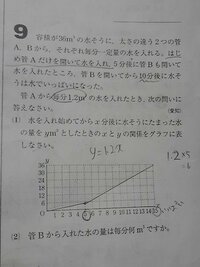 9
容積が36m³の水そうに，太さの違う2つの管
A，Bから，それぞれ毎分一定量の水を入れる。はじ
め管Aだけを開いて水を入れ，5分後に管Bも開いて
水を入れたところ，管Bを開いてから10分後に水そ
うは水でいっぱいになった。
管Aから毎分1.2m³の水を入れたとき，次の問いに
答えなさい。
(1) 水を入れ始めてからx分後に水そうにたまった水
の量をym³としたときのxとyの関係をグラフに表
しなさい。
y=1.2x
1.2×5
=6
y
36
30
24
18
12
6
0 1 2 3 4 5 6 7 8 9 10 11 12 13 14 15
(2) 管Bから入れた水の量は毎分何m³ですか。